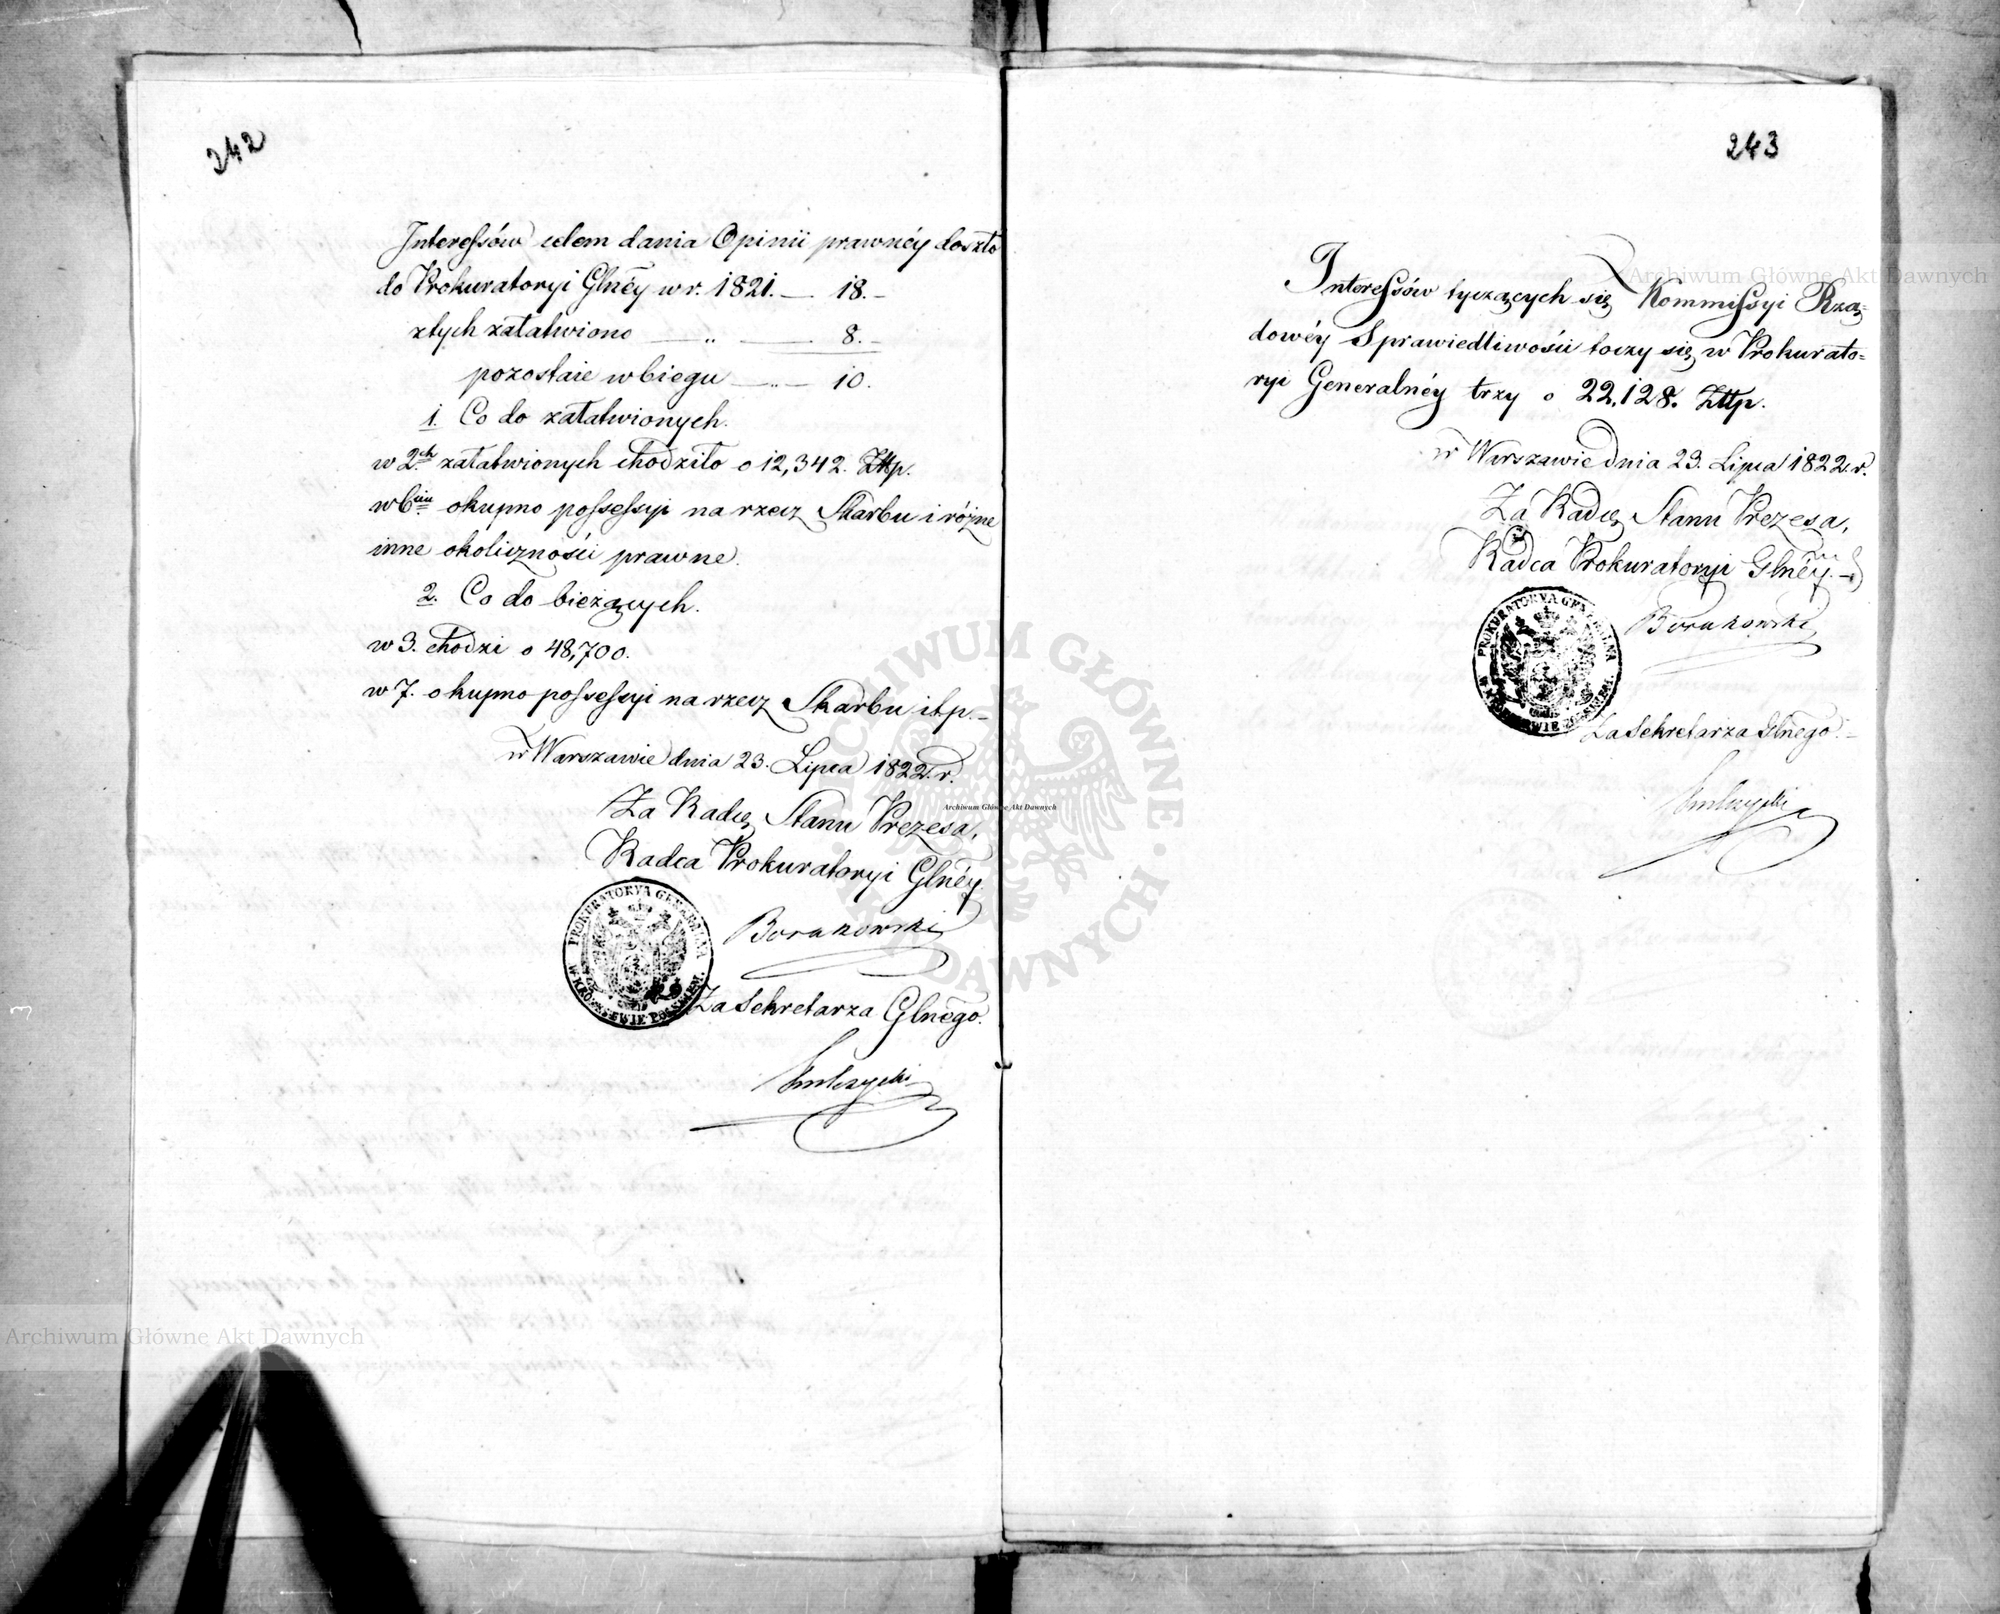 242
Interessów celem dania Opinii prawnéy doszło
do Prokuratoryi Glnéy w r. 1821. — 18. –
z tych załatwiono — „ — 8. –
pozostaie w biegu — „ — 10.
1. Co do załatwionych.
w 2ch załatwionych chodziło o 12,342. Złtp.
w 6ciu o kupno possessyi na rzecz Skarbu i różne
inne okoliczności prawne.
2. Co do bieżących.
w 3. chodzi o 48,700.
w 7. o kupno possessyi na rzecz Skarbu itp. –
w Warszawie dnia 23. Lipca 1822. r.
Za Radcę Stanu Prezesa,
Radca Prokuratoryi Glnéy.
Borakowski
PROKURATORYA GENERALNA
W KRÓLESTWIE POLSKIEM.
Za Sekretarza Glnego.
243
Interessów tyczących się Kommissyi Rzą=
dowéy Sprawiedliwości toczy się w Prokurato=
ryi Generalnéy trzy o 22,128. Złtp.
w Warszawie dnia 23. Lipca 1822. r.
Za Radcę Stanu Prezesa,
Radca Prokuratoryi Glnéy. –
Borakowski
PROKURATORYA GENERALNA
W KRÓLESTWIE POLSKIEM.
Za Sekretarza Glnego. –
Archiwum Główne Akt Dawnych
ARCHIWUM GŁÓWNE AKT DAWNYCH
Archiwum Główne Akt Dawnych
Archiwum Główne Akt Dawnych
3